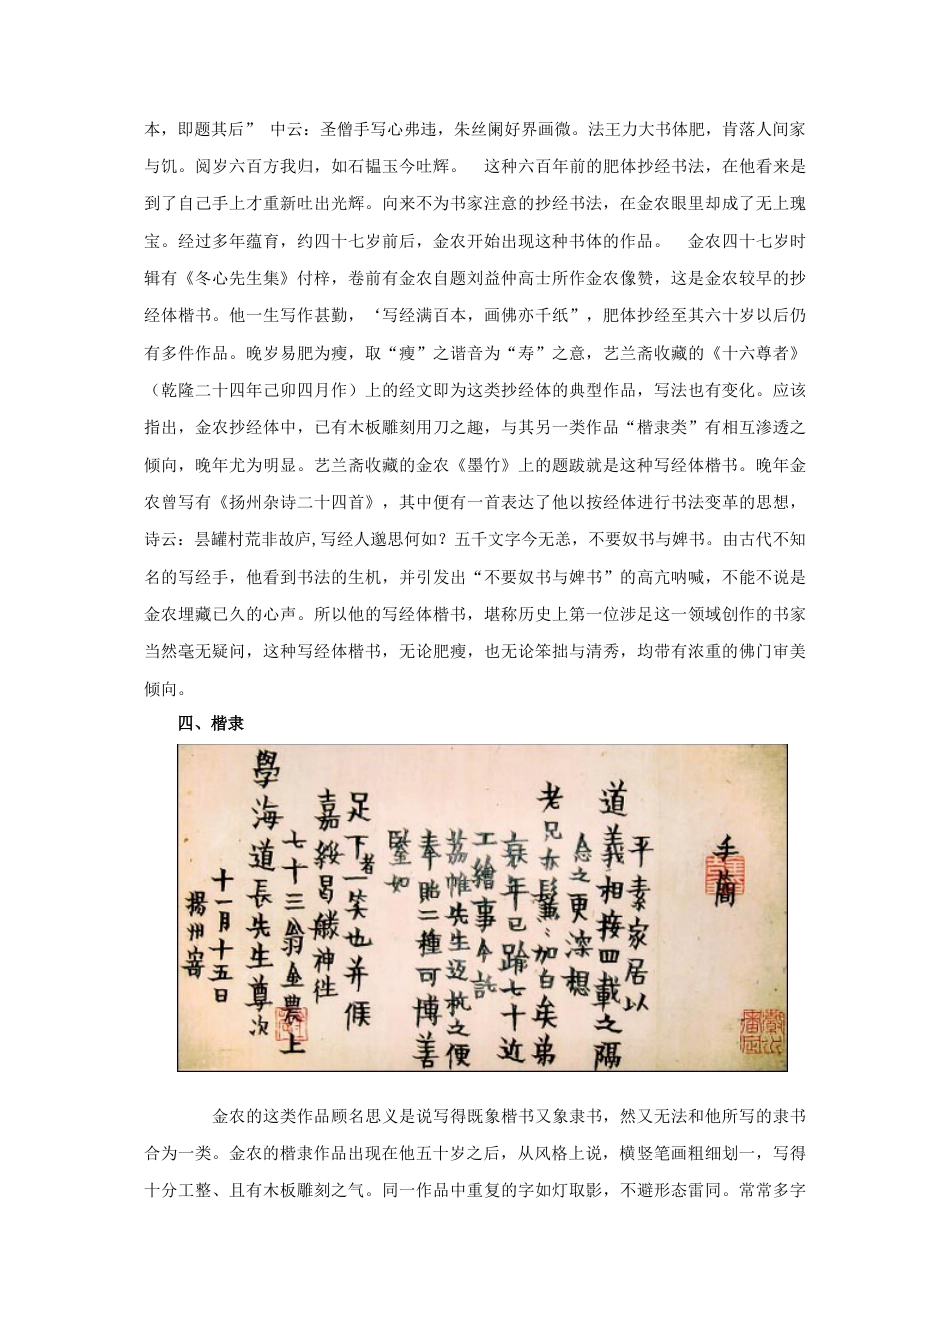 本，即题其后” 中云：圣僧手写心弗违，朱丝阑好界画微。法王力大书体肥，肯落人间家
与饥。阅岁六百方我归，如石韫玉今吐辉。　这种六百年前的肥体抄经书法，在他看来是
到了自己手上才重新吐出光辉。向来不为书家注意的抄经书法，在金农眼里却成了无上瑰
宝。经过多年蕴育，约四十七岁前后，金农开始出现这种书体的作品。　金农四十七岁时
辑有《冬心先生集》付梓，卷前有金农自题刘益仲高士所作金农像赞，这是金农较早的抄
经体楷书。他一生写作甚勤，‘写经满百本，画佛亦千纸”，肥体抄经至其六十岁以后仍
有多件作品。晚岁易肥为瘦，取“瘦”之谐音为“寿”之意，艺兰斋收藏的《十六尊者》
（乾隆二十四年己卯四月作）上的经文即为这类抄经体的典型作品，写法也有变化。应该
指出，金农抄经体中，已有木板雕刻用刀之趣，与其另一类作品“楷隶类”有相互渗透之
倾向，晚年尤为明显。艺兰斋收藏的金农《墨竹》上的题跋就是这种写经体楷书。晚年金
农曾写有《扬州杂诗二十四首》，其中便有一首表达了他以按经体进行书法变革的思想，
诗云：昙罐村荒非故庐,写经人邈思何如？五千文字今无恙，不要奴书与婢书。由古代不知
名的写经手，他看到书法的生机，并引发出“不要奴书与婢书”的高亢呐喊，不能不说是
金农埋藏已久的心声。所以他的写经体楷书，堪称历史上第一位涉足这一领域创作的书家
当然毫无疑问，这种写经体楷书，无论肥瘦，也无论笨拙与清秀，均带有浓重的佛门审美
倾向。
四、楷隶
手简
平素家居以
道義相接四載之隔
念之更深想
老兄亦鬢鬢加白矣弟
衰年已踰七十近
工繪事今託
荔帷先生迈杭之便
奉貽二種可博善
鑒如
足下者一笑也并候
嘉綏曷勝神往
七十三翁金農上
學海道長先生尊次
十一月十五日
揚州寄
金农的这类作品顾名思义是说写得既象楷书又象隶书，然又无法和他所写的隶书
合为一类。金农的楷隶作品出现在他五十岁之后，从风格上说，横竖笔画粗细划一，写得
十分工整、且有木板雕刻之气。同一作品中重复的字如灯取影，不避形态雷同。常常多字